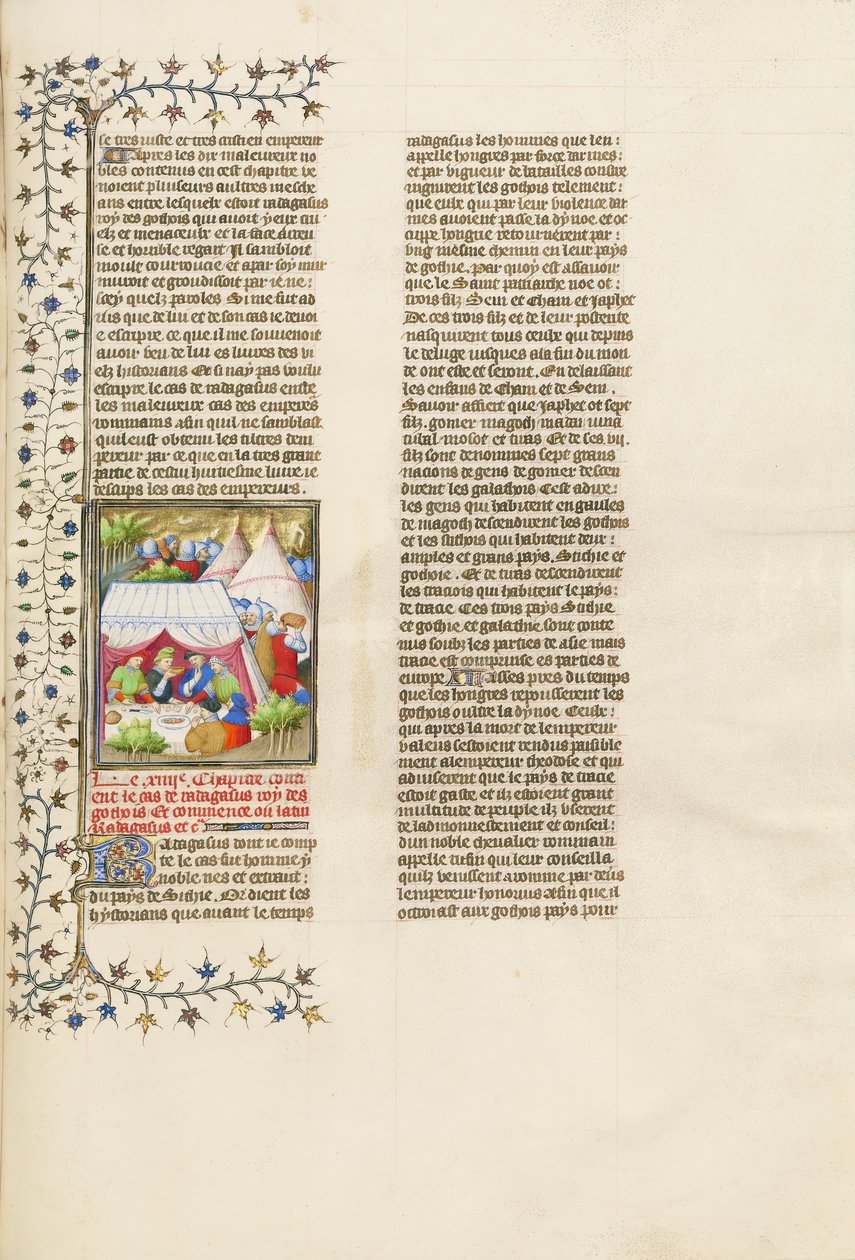 se tres iuste et tres cristien empereur
Apres les dix maleureux no
bles contenus en cest chapitre ve
noient pluseurs aultres mesche
ans entre lesquelz estoit radagasus
roy des gothois qui auoit yeux cru
elz et menaceulx et la face
se et horrible regart Il sambloit
moult courroucie et apar soy mur
muroit et groudissoit par ie ne :
scey quelz paroles Si me fut ad
uis que de lui et de son cas ie deuoi
e escripre ce que il me souuenoit
auoir veu de lui es liures des vi
elz historians Et si nay pas voulu
escripre le cas de radagasus entre
les maleureux cas des emperes
rommains afin quil ne samblast
quil eust obtenu les tiltres dem
pereur par ce que en la tres grant
partie de cestui huitiesme liure ie
descrips les cas des empereurs .
Le xiiiie. Chapitre conti
ent le cas de radagasus roy des
gothois Et commence ou latin
Radagasus et cꝰ
Radagasus dont ie comp
te le cas fut homme
noble nes et extrait :
du pays de Sithie . Or dient les
hystorians que auant le temps
radagasus les hommes que len :
appelle hongres par force darmes :
et par vigueur de batailles contre
ingnirent les gothois telement :
que eulx qui par leur violence dar
mes auoient passe la dynoe et oc
cuppe hongrie retournerent par :
vng mesme chemin en leur pays
de gothie . Par quoy est assauoir
que le Saint patriache noe ot :
trois filz Sem et Cham et Japhet
De ces trois filz et de leur posterite
nasquirent tous ceulx qui depuis
le deluge iusques ala fin du mon
de ont este et seront . En delaissant
les enfans de Cham et de Sem .
Sauoir affiert que Japhet ot sept
filz . gomer magoch madai iuna
tubal mosot et tiras Et de ces vii.
filz sont denommes sept grans
nacions de gens de gomer descen
dirent les galathois Cest adire :
les gens qui habitent en gaules
de magoch descendirent les gothois
et les sithois qui habitent deux :
amples et grans pays . Sithie et
gothie . Et de tiras descendirent
les traciois qui habitent le pays :
de tracie Ces trois pays Sithie
et gothie et galathie sont conte
nus soubz les parties de asie mais
tracie est comprinse es parties de
europe Asses pres du temps
que les hongres repousserent les
gothois oultre la dynoe Ceulx :
qui apres la mort de lempereur
valens sestoient rendus paisible
ment alempereur theodose et qui
aduiserent que le pays de tracie
estoit gaste et ilz estoient grant
multitude de peuple ilz vserent
de ladmonnestement et conseil :
dun noble cheualier rommain
appelle rufin qui leur conseilla
quilz venissent a romme par deuers
lempereur honorius afin que il
octroiast aux gothois pays pour